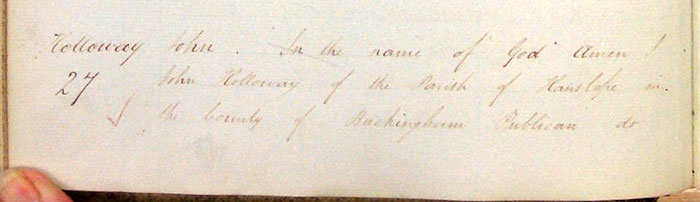 Holloway John. In the name of God Amen I
27 John Holloway of the Parish of Hanslope in
the County of Buckingham Publican do